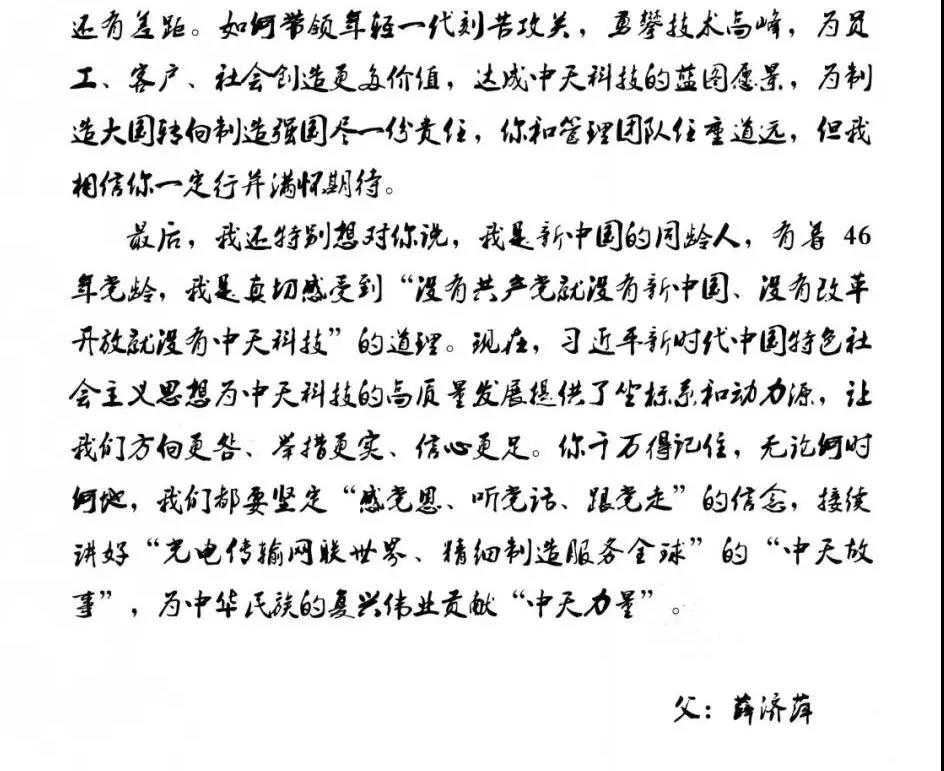 还有差距。如何带领年轻一代刻苦攻关，勇攀技术高峰，为员
工、客户、社会创造更多价值，达成中天科技的蓝图愿景，为制
造大国转向制造强国尽一份责任，你和管理团队任重道远，但我
相信你一定行并满怀期待。
最后，我还特别想对你说，我是新中国的同龄人，有着 46
年党龄，我是真切感受到“没有共产党就没有新中国、没有改革
开放就没有中天科技”的道理。现在，习近平新时代中国特色社
会主义思想为中天科技的高质量发展提供了坐标系和动力源，让
我们方向更明、举措更实、信心更足。你千万得记住，无论何时
何地，我们都要坚定“感党恩、听党话、跟党走”的信念，接续
讲好“光电传输网联世界、精细制造服务全球”的“中天故
事”，为中华民族的复兴伟业贡献“中天力量”。
父：薛济萍